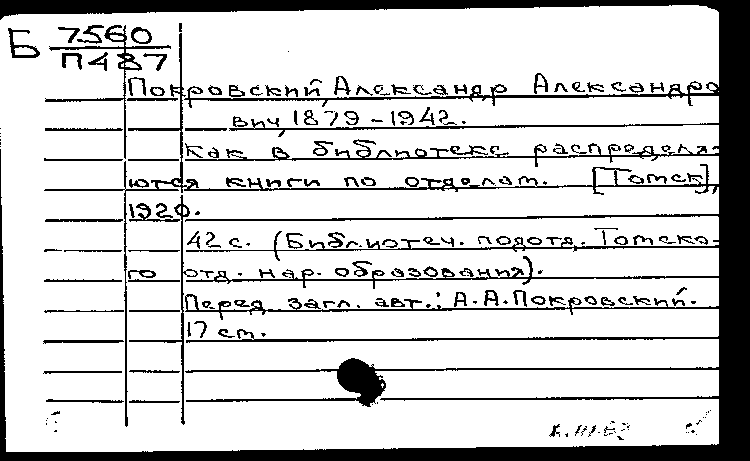 Б 7560
П487
Покровский, Александр Александро
вич, 1879-1942.
Как в библиотеке распределя-
ются книги по отделам. [Томск],
1920.
42 с. (Библиотеч. подотд. Томско-
го отд. нар. образования).
Перед загл. авт.: А.А.Покровский.
17 см.